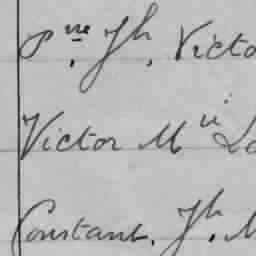 Pre, Jh, Victo
Victor Mie Lo
Constant, Jh, M